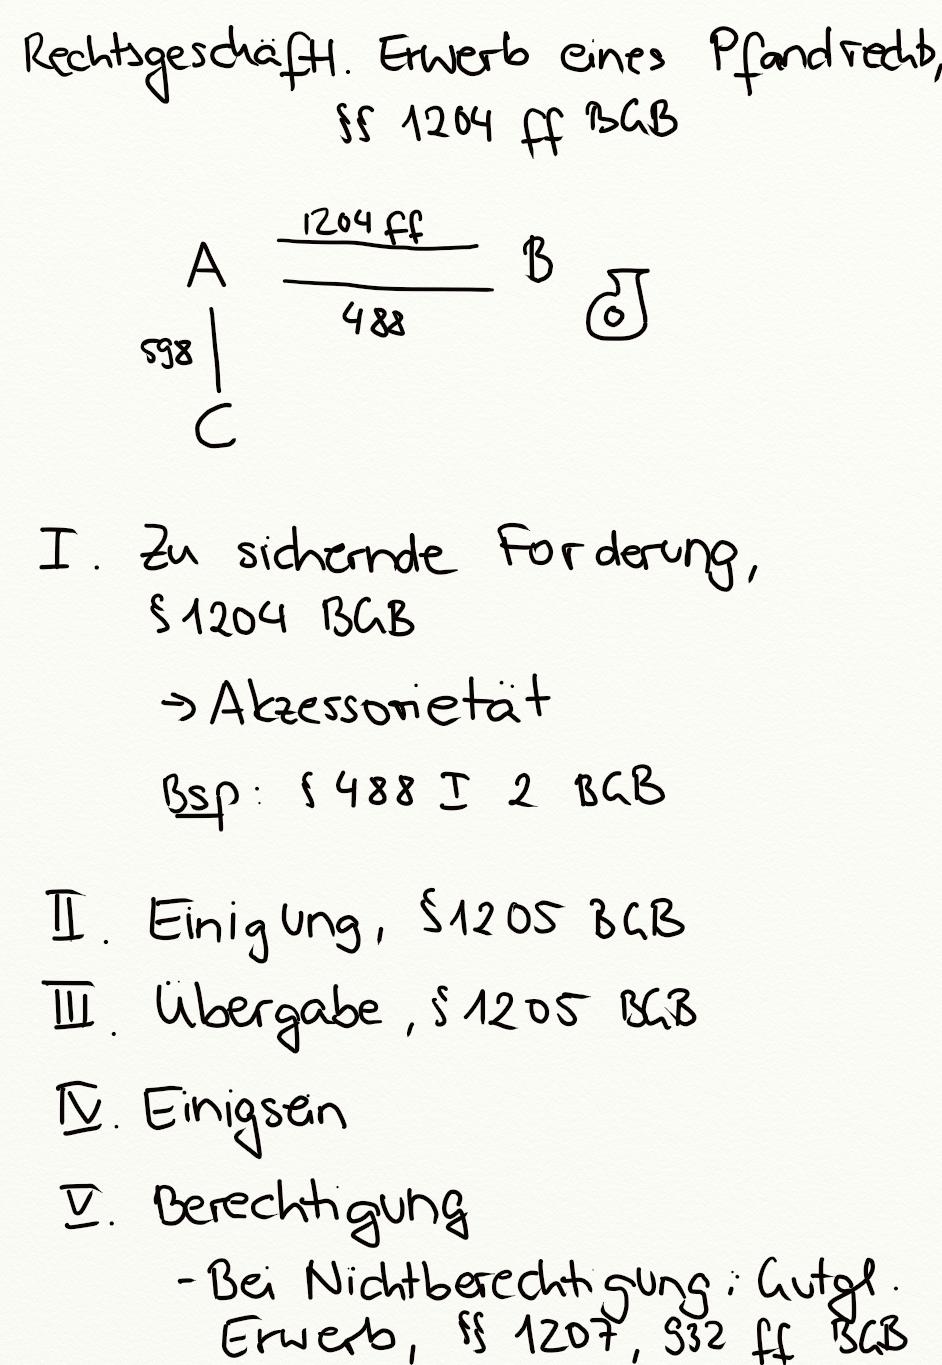 Rechtsgeschäftl. Erwerb eines Pfandrechts,
§§ 1204 ff BGB
1204 ff
A B
488
598
C
I. Zu sichernde Forderung,
§ 1204 BGB
→ Akzessorietät
Bsp: § 488 I 2 BGB
II. Einigung, § 1205 BGB
III. Übergabe, § 1205 BGB
IV. Einigsein
V. Berechtigung
- Bei Nichtberechtigung: Gutgl.
Erwerb, §§ 1207, 932 ff BGB